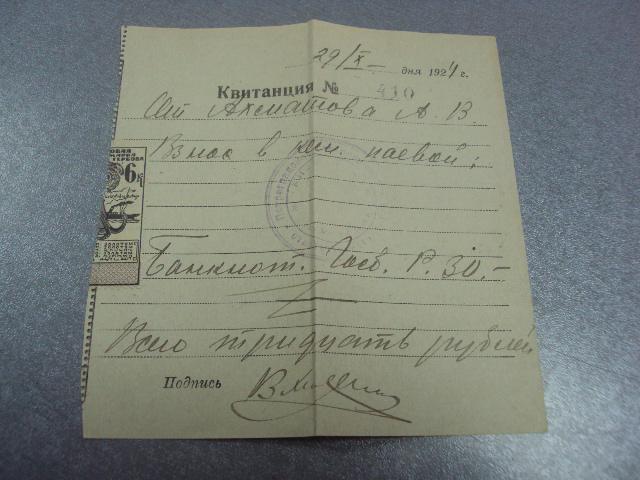 29/X дня 1924 г.
Квитанция № 410
От Ахматова А. В
Взнос в кам. паевой;
ГЕРБОВАЯ
МАРКА
6 К
Банкнот. Госб. Р. 30.-
Всего тридцать рублей
Подпись